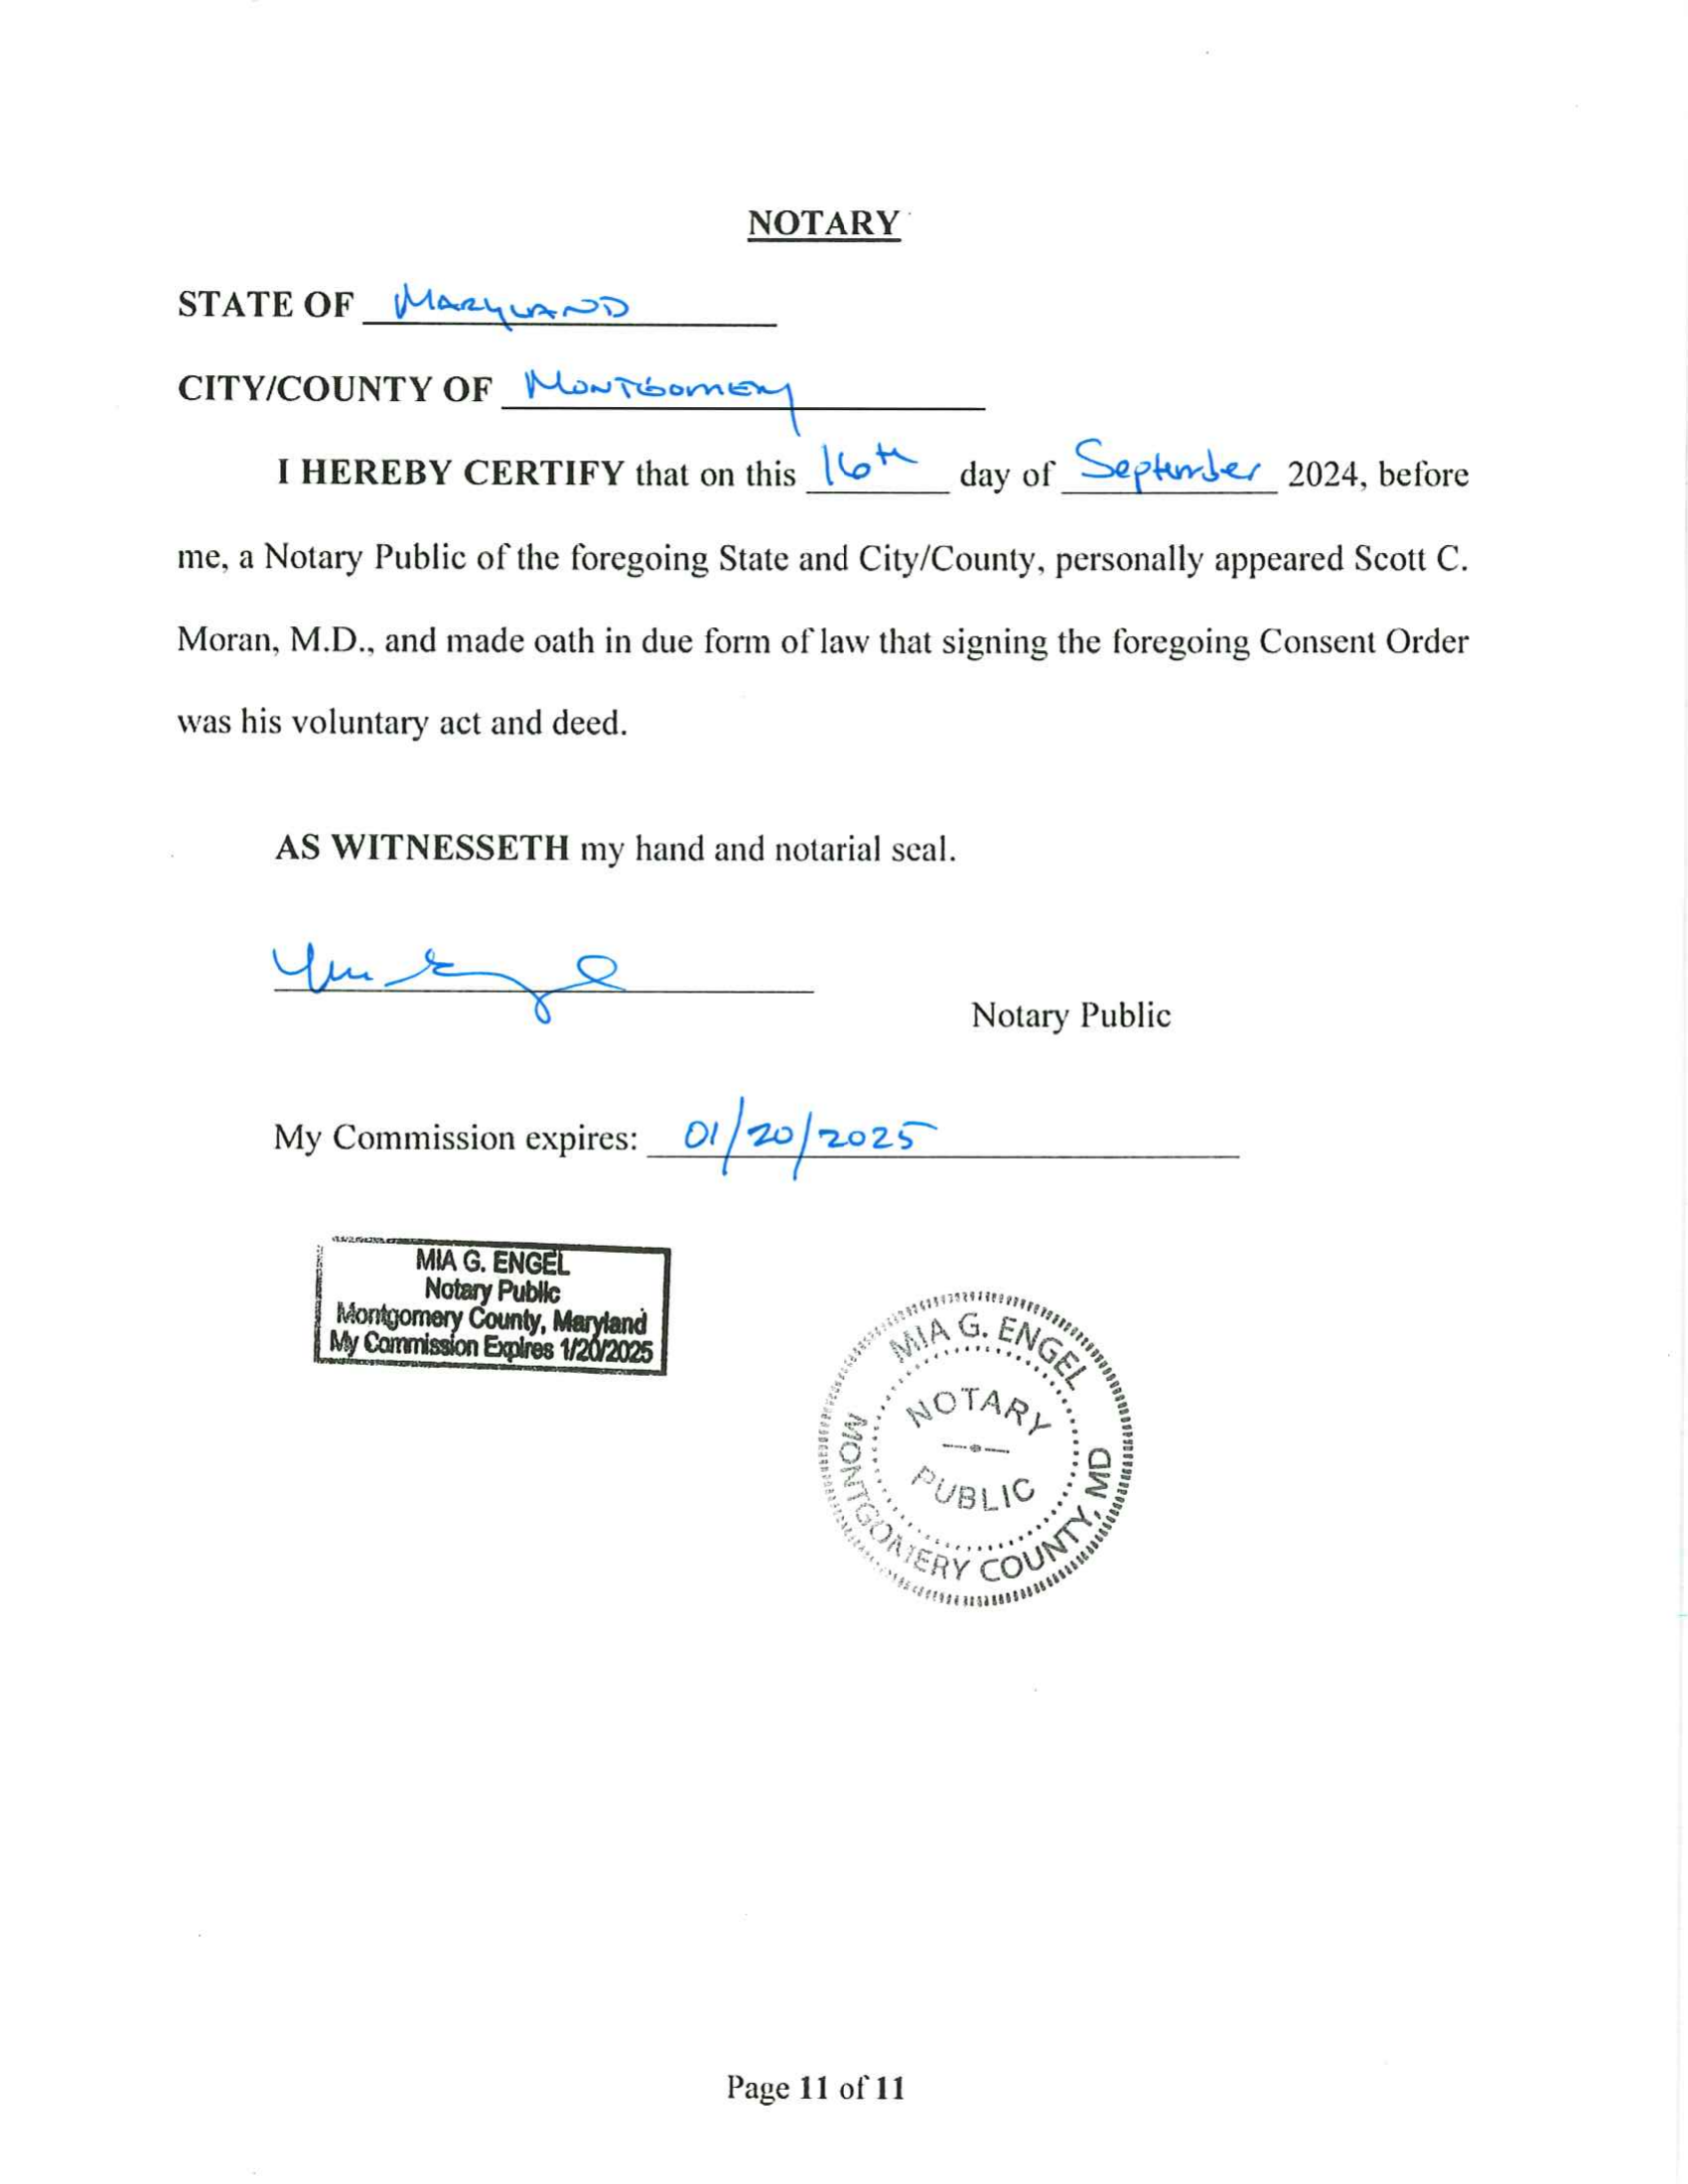 NOTARY
STATE OF MARYLAND
CITY/COUNTY OF MONTGOMERY
I HEREBY CERTIFY that on this 16th day of September 2024, before
me, a Notary Public of the foregoing State and City/County, personally appeared Scott C.
Moran, M.D., and made oath in due form of law that signing the foregoing Consent Order
was his voluntary act and deed.
AS WITNESSETH my hand and notarial seal.
Notary Public
My Commission expires: 01/20/2025
MIA G. ENGEL
Notary Public
Montgomery County, Maryland
My Commission Expires 1/20/2025
MIA G. ENGEL
NOTARY
PUBLIC
MONTGOMERY COUNTY, MD
Page 11 of 11